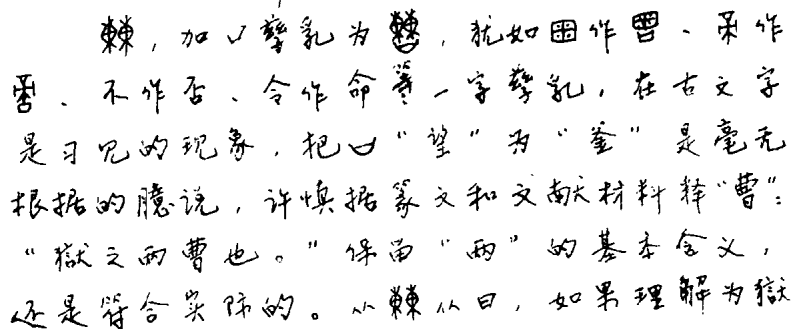 𣍘，加ㄩ孳乳为，犹如田作、作
、不作否、令作命等一字孳乳，在古文字
是习见的现象，把ㄩ“望”为“釜”是毫无
根据的臆说，许慎据篆文和文献材料释“曹”：
“獄之两曹也。”保留“两”的基本含义，
还是符合实际的。从㯥从日，如果理解为獄